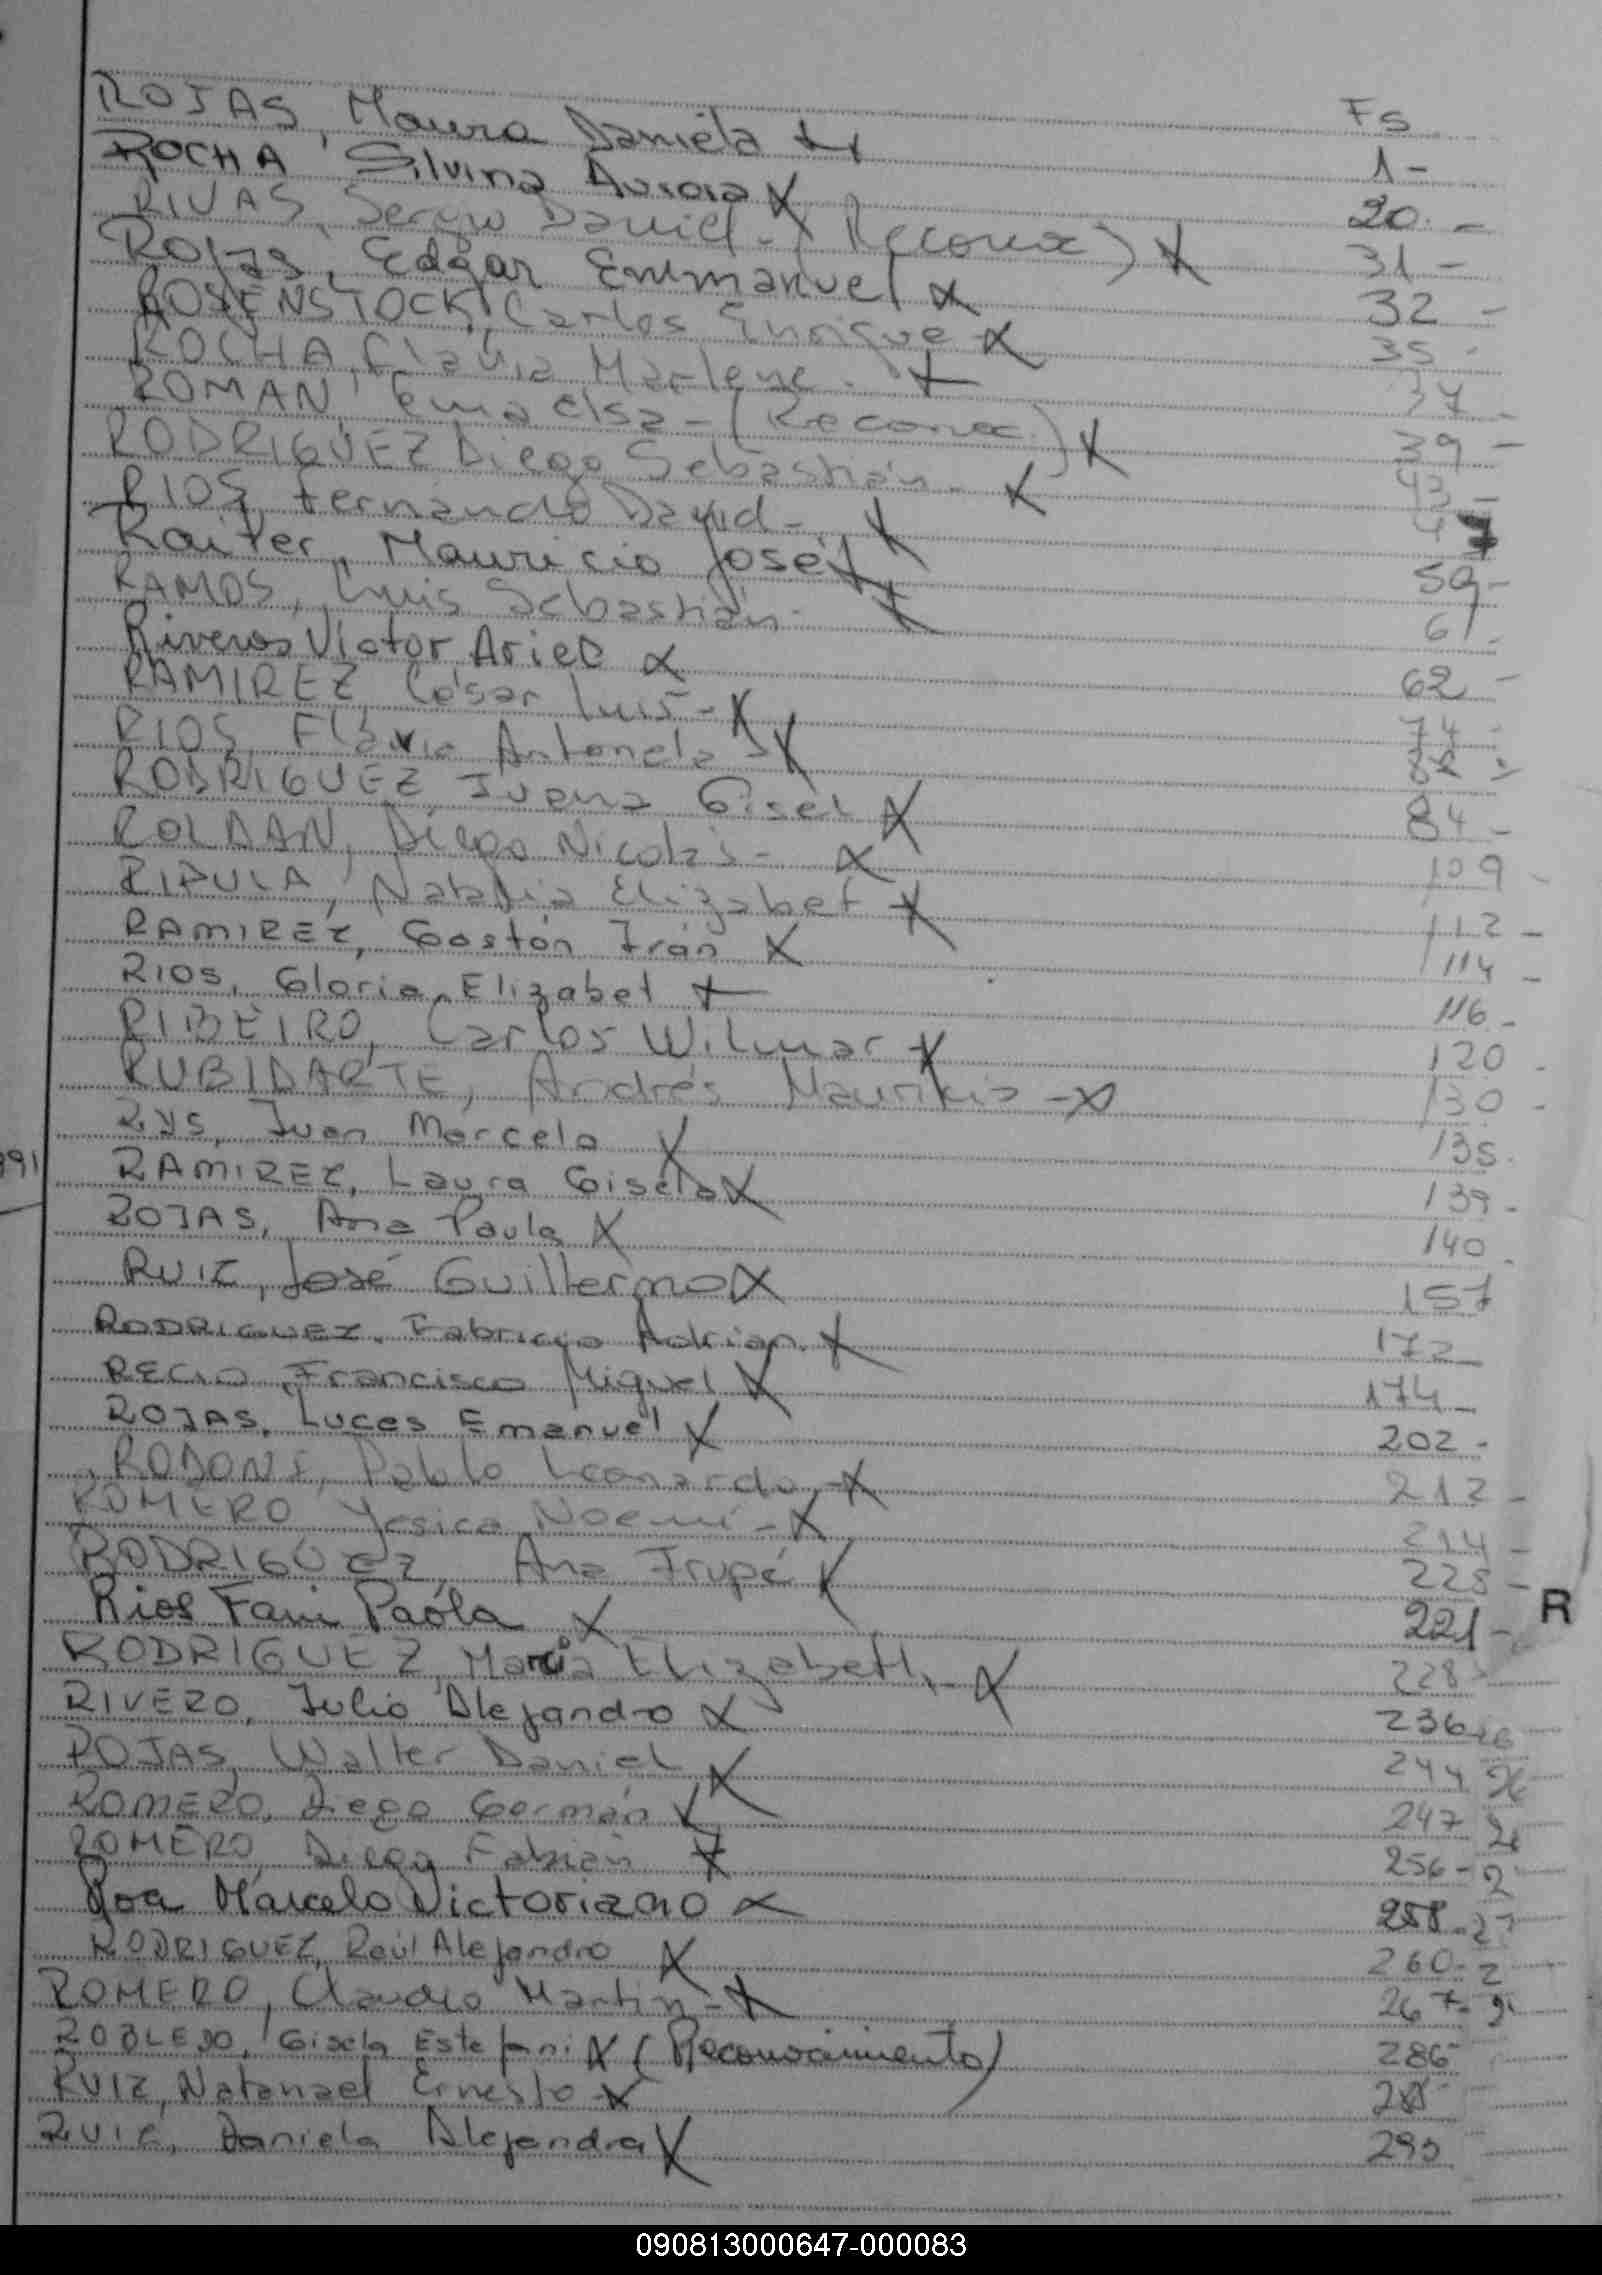 Fs
ROJAS, Maura Daniela X 1-
ROCHA Silvina Aurora X 20.-
RIVAS, Sergio Daniel - (Reconoc) X 31-
Rojas, Edgar Emmanuel X 32-
ROSENSTOCK, Carlos Enrique X 35-
ROCHA, Flavia Marlene. X 37-
ROMAN, Ema Elsa - (Reconoc.) X 39-
RODRIGUEZ Diego Sebastián - X 43-
RIOS, Fernando David - X 47
Raiter, Mauricio José X 59-
RAMOS, Luis Sebastián - X 61.
Riveros Víctor Ariel X 62-
RAMIREZ, César Luis - X 74-
RIOS, Flavia Antonela - X 82-
RODRIGUEZ, Juana Gisel X 84-
ROLDAN, Diego Nicolás - X 109-
RIPULA, Natalia Elizabet X 112-
RAMIREZ, Gastón Irán X 114-
RIOS, Gloria Elizabet X 116-
RIBEIRO, Carlos Wilmar X 120-
RUBIDARTE, Andrés Mauricio - X 130-
RYS, Juan Marcelo X 135.
RAMIREZ, Laura Gisela X 139.
991
ROJAS, Ana Paula X 140.
RUIZ, José Guillermo X 157
RODRIGUEZ, Fabricio Adrian. X 172-
RECIO, Francisco Miguel X 174-
ROJAS, Lucas Emanuel X 202-
RODONI, Pablo Leonardo, - X 212-
ROMERO Yesica Noemí - X 214-
RODRIGUEZ, Ana Irupé X 225-
Rios Fani Paola X 221-
R
RODRIGUEZ, María Elizabeth - X 228
RIVERO, Julio Alejandro X 236-
ROJAS, Walter Daniel X 244
ROMERO, Diego Germán X 247
ROMERO, Diego Fabián X 256-
Roa Marcelo Victoriano X 258-
RODRIGUEZ, Raúl Alejandro X 260-
ROMERO, Claudio Martín - X 267-
ROBLEDO, Gisela Estefani X (Reconocimiento) 286-
RUIZ, Natanael Ernesto - X
RUIZ, Daniela Alejandra X 295
090813000647-000083